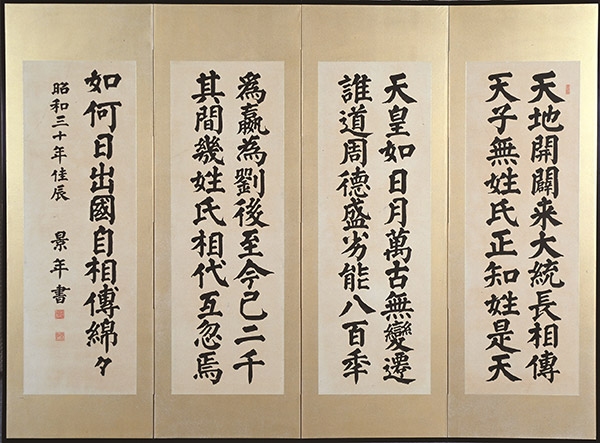 天地開闢来大統長相傳
天子無姓氏正知姓是天
天皇如日月萬古無變遷
誰道周德盛劣能八百年
為嬴為劉後至今已二千
其間幾姓氏相代互忽焉
如何日出國自相傳綿々
昭和三十年佳辰
景年書